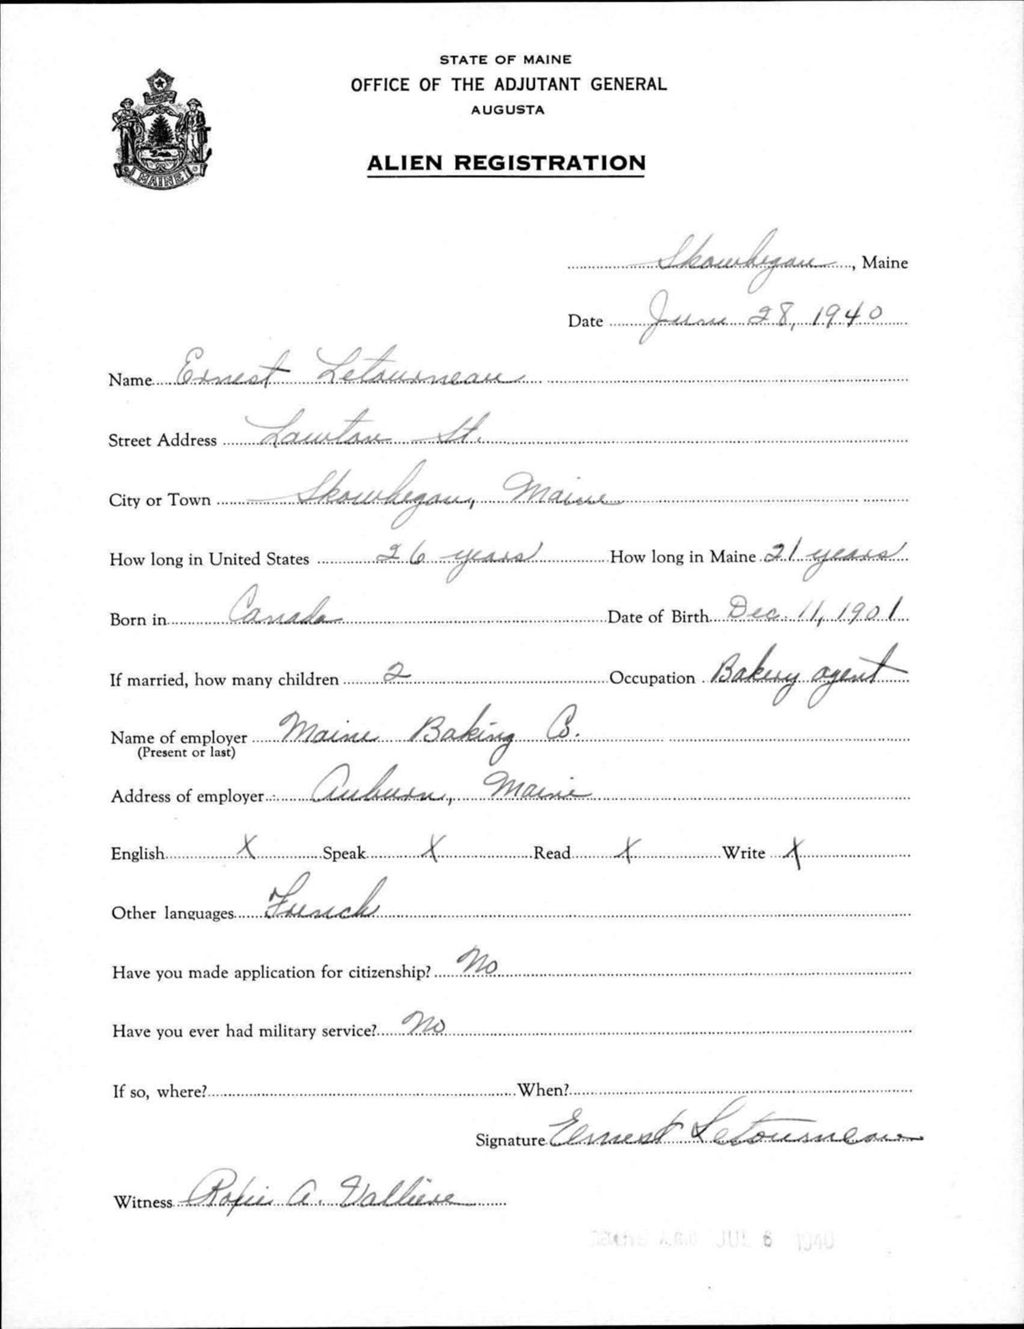 STATE OF MAINE
OFFICE OF THE ADJUTANT GENERAL
AUGUSTA
ALIEN REGISTRATION
MAINE
Skowhegan, Maine
Date June 28, 1940
Name Ernest Letourneau
Street Address Lawton St.
City or Town Skowhegan, Maine
How long in United States 26 years How long in Maine 21 years
Born in Canada Date of Birth Dec. 11, 1901
If married, how many children 2 Occupation Bakery agent
Name of employer Maine Baking Co.
(Present or last)
Address of employer Auburn, Maine
English X Speak X Read X Write X
Other languages French
Have you made application for citizenship? No
Have you ever had military service? No
If so, where? When?
Signature Ernest Letourneau
Witness A. Valliere
JUL 6 1940